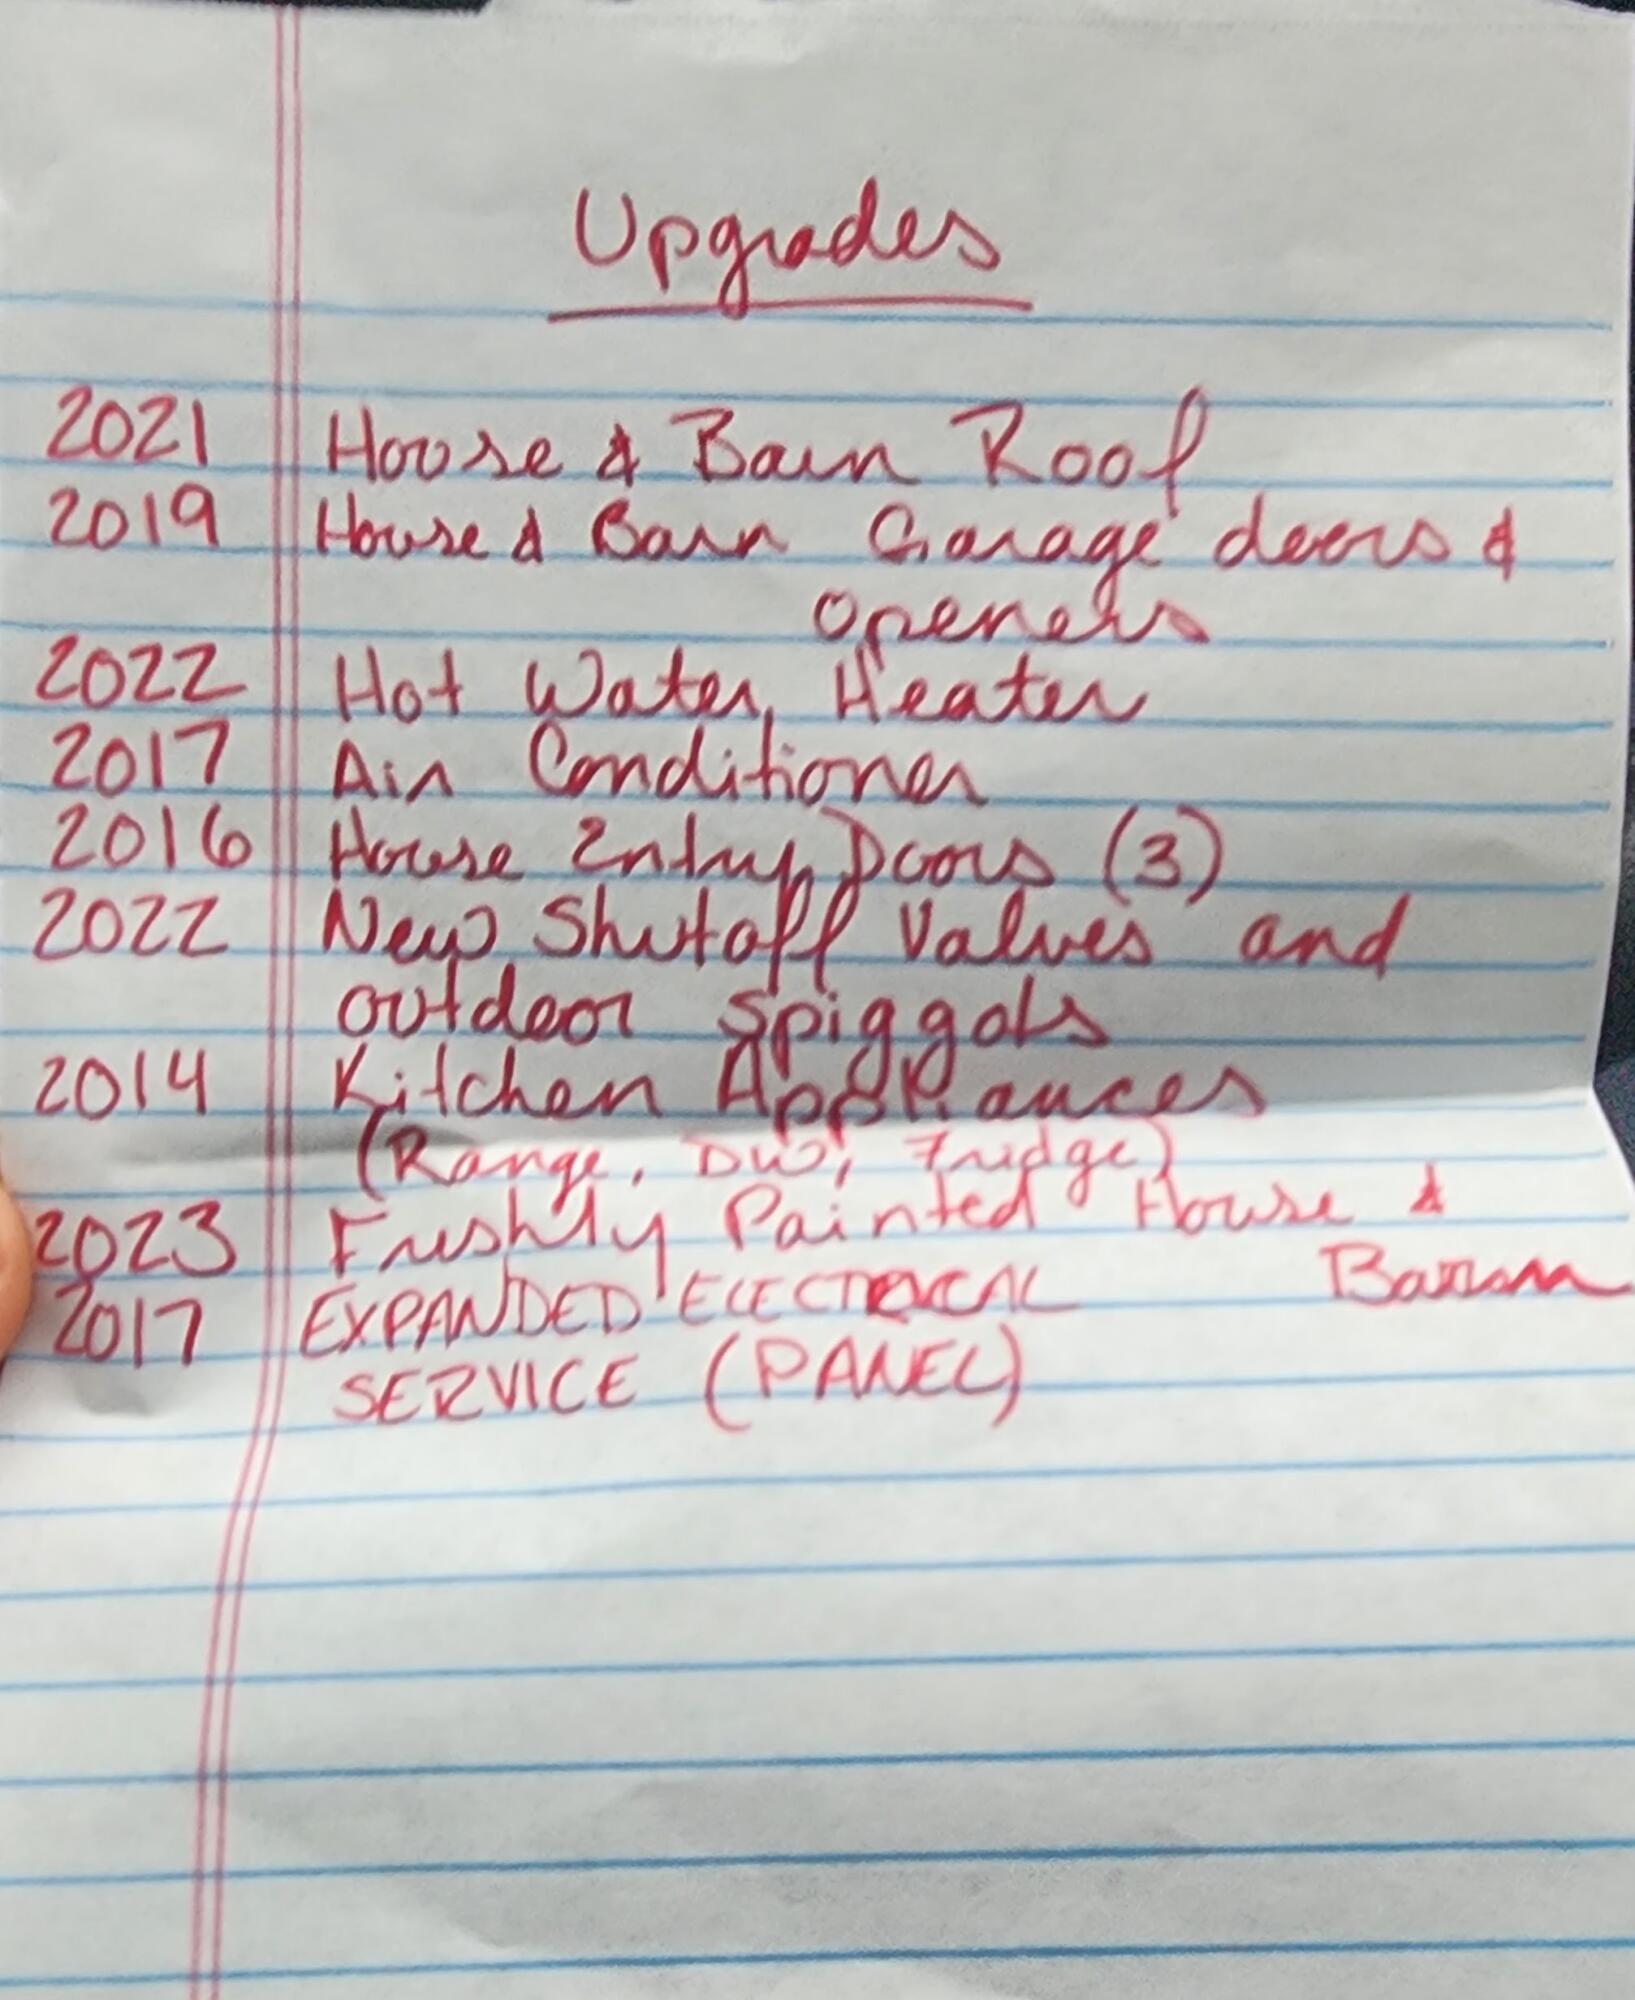 Upgrades
2021 House & Barn Roof
2019 House & Barn Garage doors &
openers
2022 Hot Water Heater
2017 Air Conditioner
2016 House Entry Doors (3)
2022 New Shutoff Valves and
outdoor spiggots
2014 Kitchen Appliances
(Range, DW, Fridge)
2023 Freshly Painted House &
Barn
2017 EXPANDED ELECTRICAL
SERVICE (PANEL)